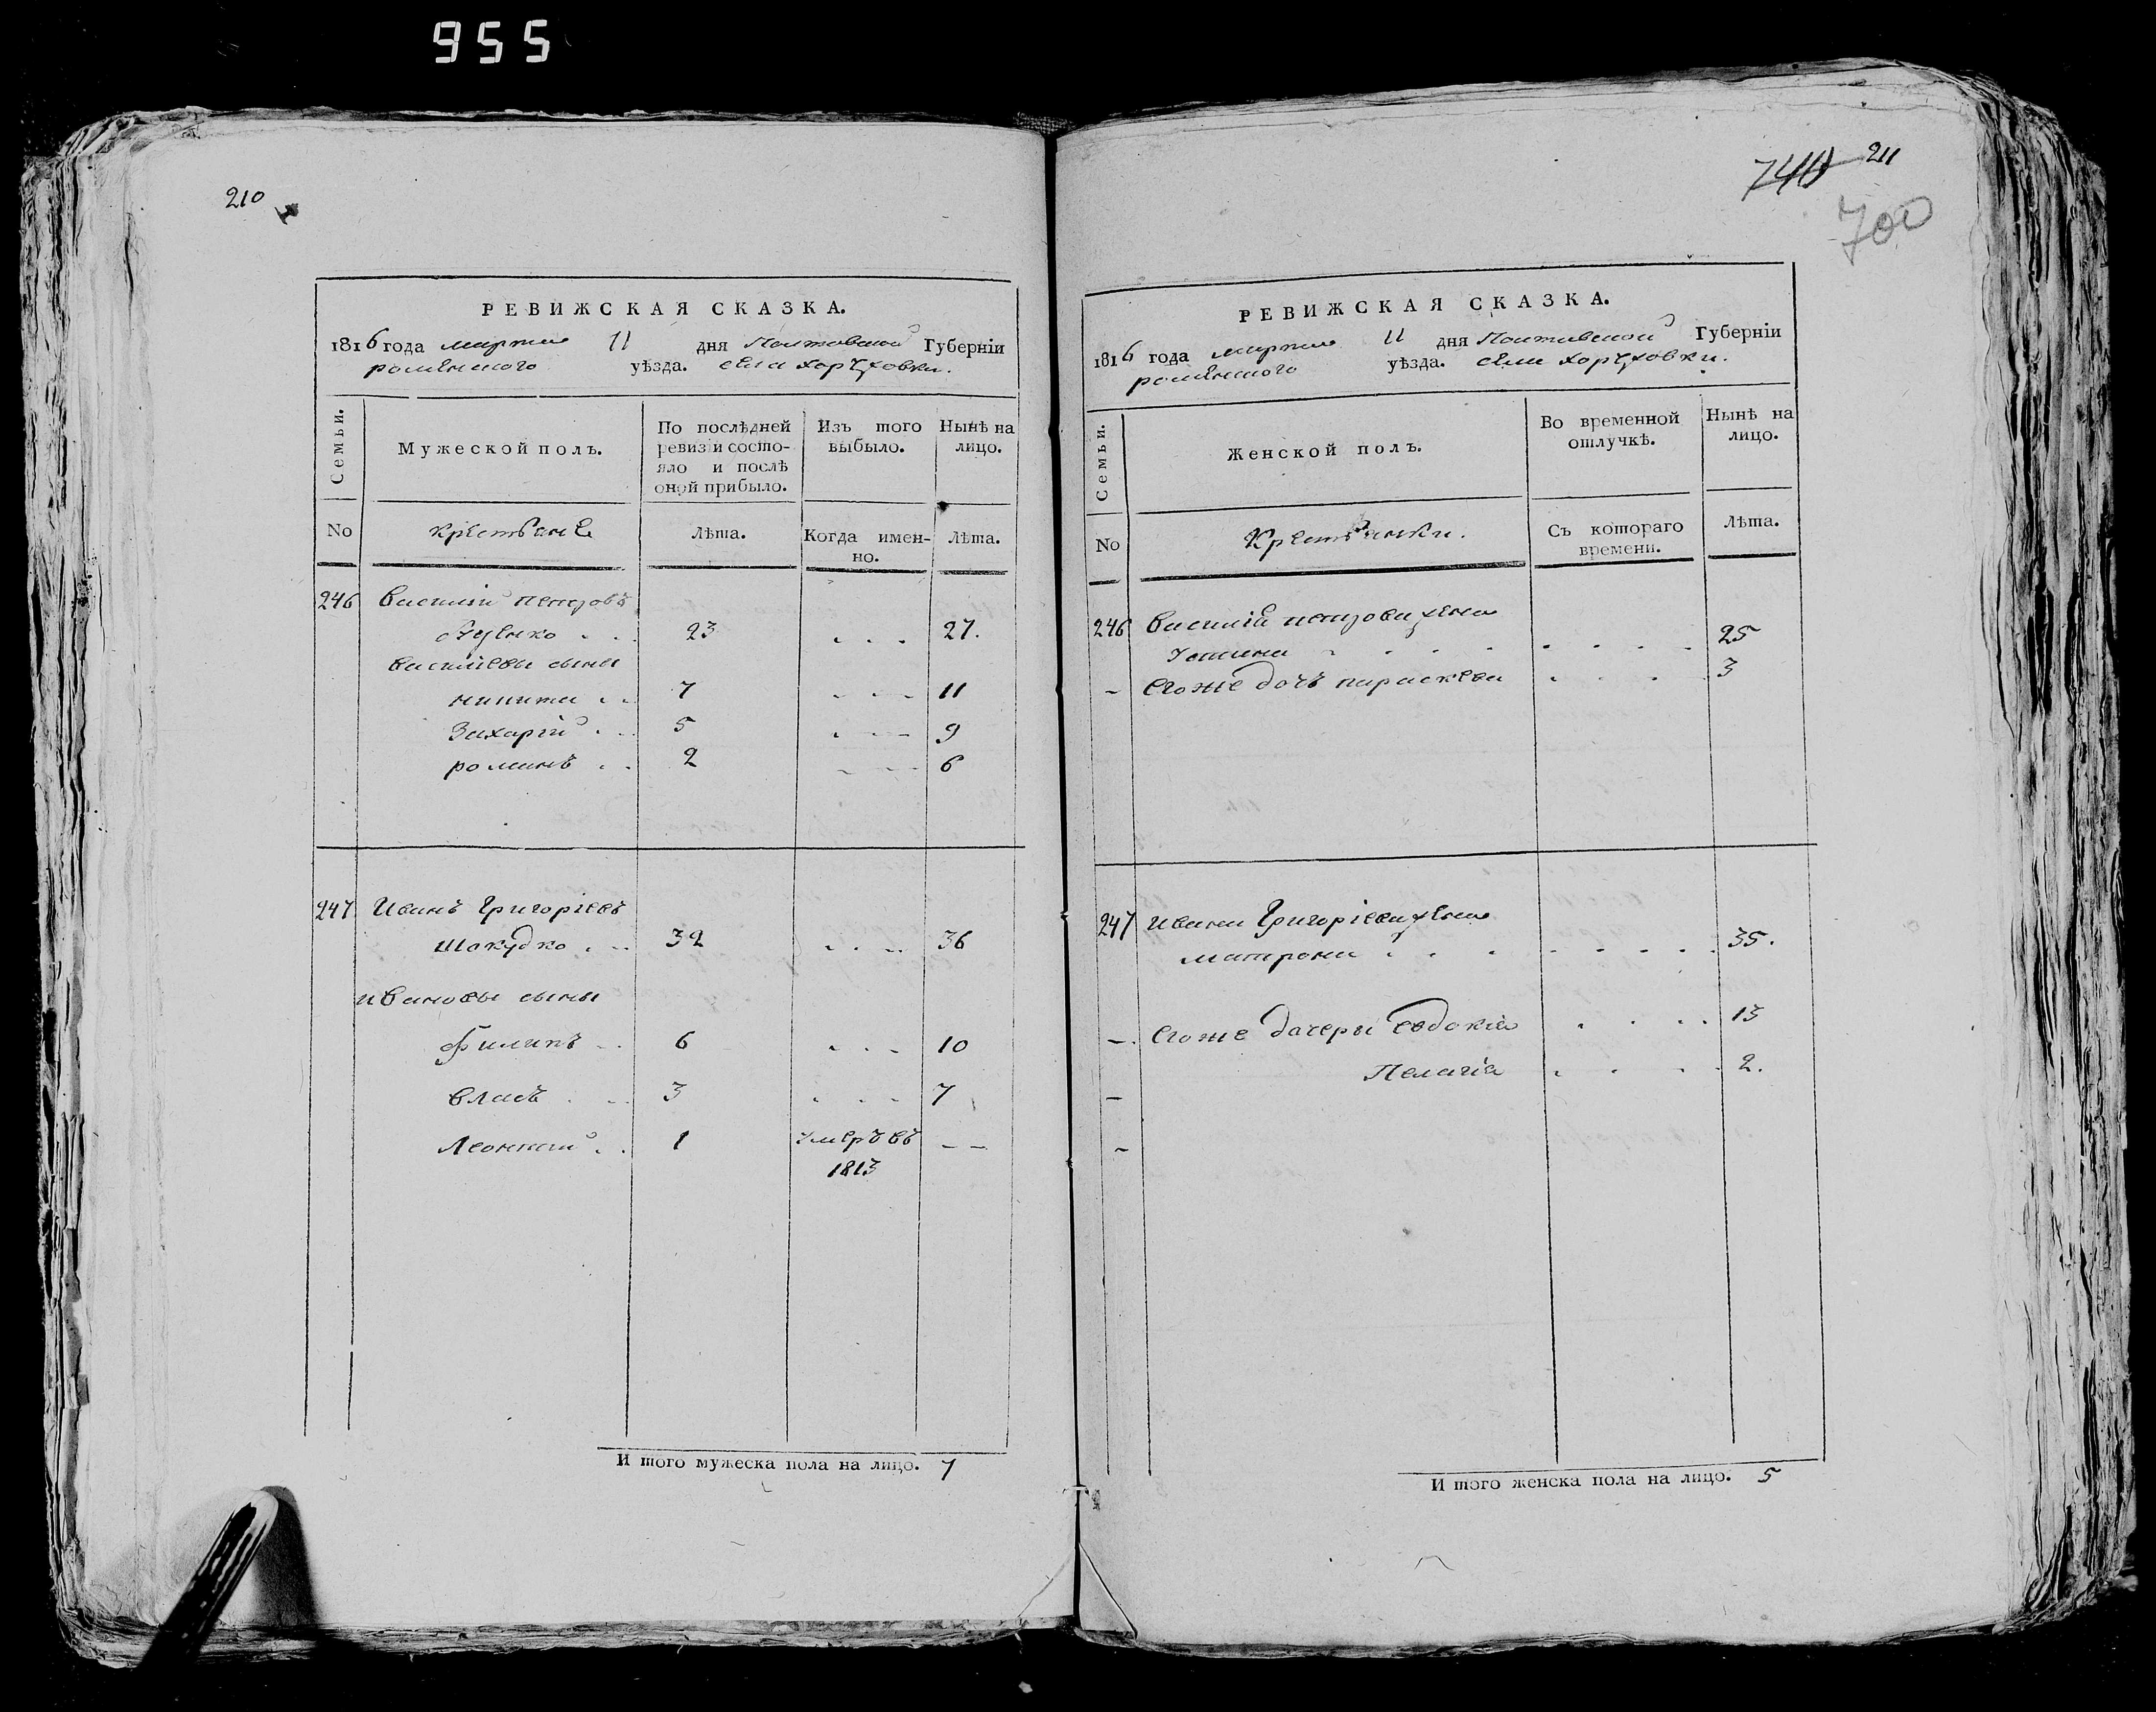 955
210
РЕВИЖСКАЯ СКАЗКА.
1816 года марта 11 дня Полтавской Губерніи
роменского уѣзда. села хоружовки.
Семьи.
Мужеской полъ.
По послѣдней ревизіи состояло и послѣ оной прибыло.
Изъ того выбыло.
Нынѣ на лицо.
No
крестьяне
Лѣта.
Когда именно.
Лѣта.
246 Василій петровъ
23 27.
василіевы сыны
никита 7 11
Захарій 5 9
романъ 2 6
247 Иванъ Григоріевъ
Шакудко 32 36
ивановы сыны
Филипъ 6 10
власъ 3 7
Леонтій 1 умеръ въ — —
1813
И того мужеска пола на лицо. 7
740 211
700
РЕВИЖСКАЯ СКАЗКА.
1816 года марта 11 дня Полтавской Губерніи
роменского уѣзда. села хоружовки.
Семьи.
Женской полъ.
Во временной отлучкѣ.
Нынѣ на лицо.
No
Крестьянки.
Съ котораго времени.
Лѣта.
246 Василія петрова жена
Устина 25
– его же дочь параскева 3
247 ивана Григоріева жена
матрона 35.
– его же дочери евдокія 13
– Пелагія 2.
–
И того женска пола на лицо. 5